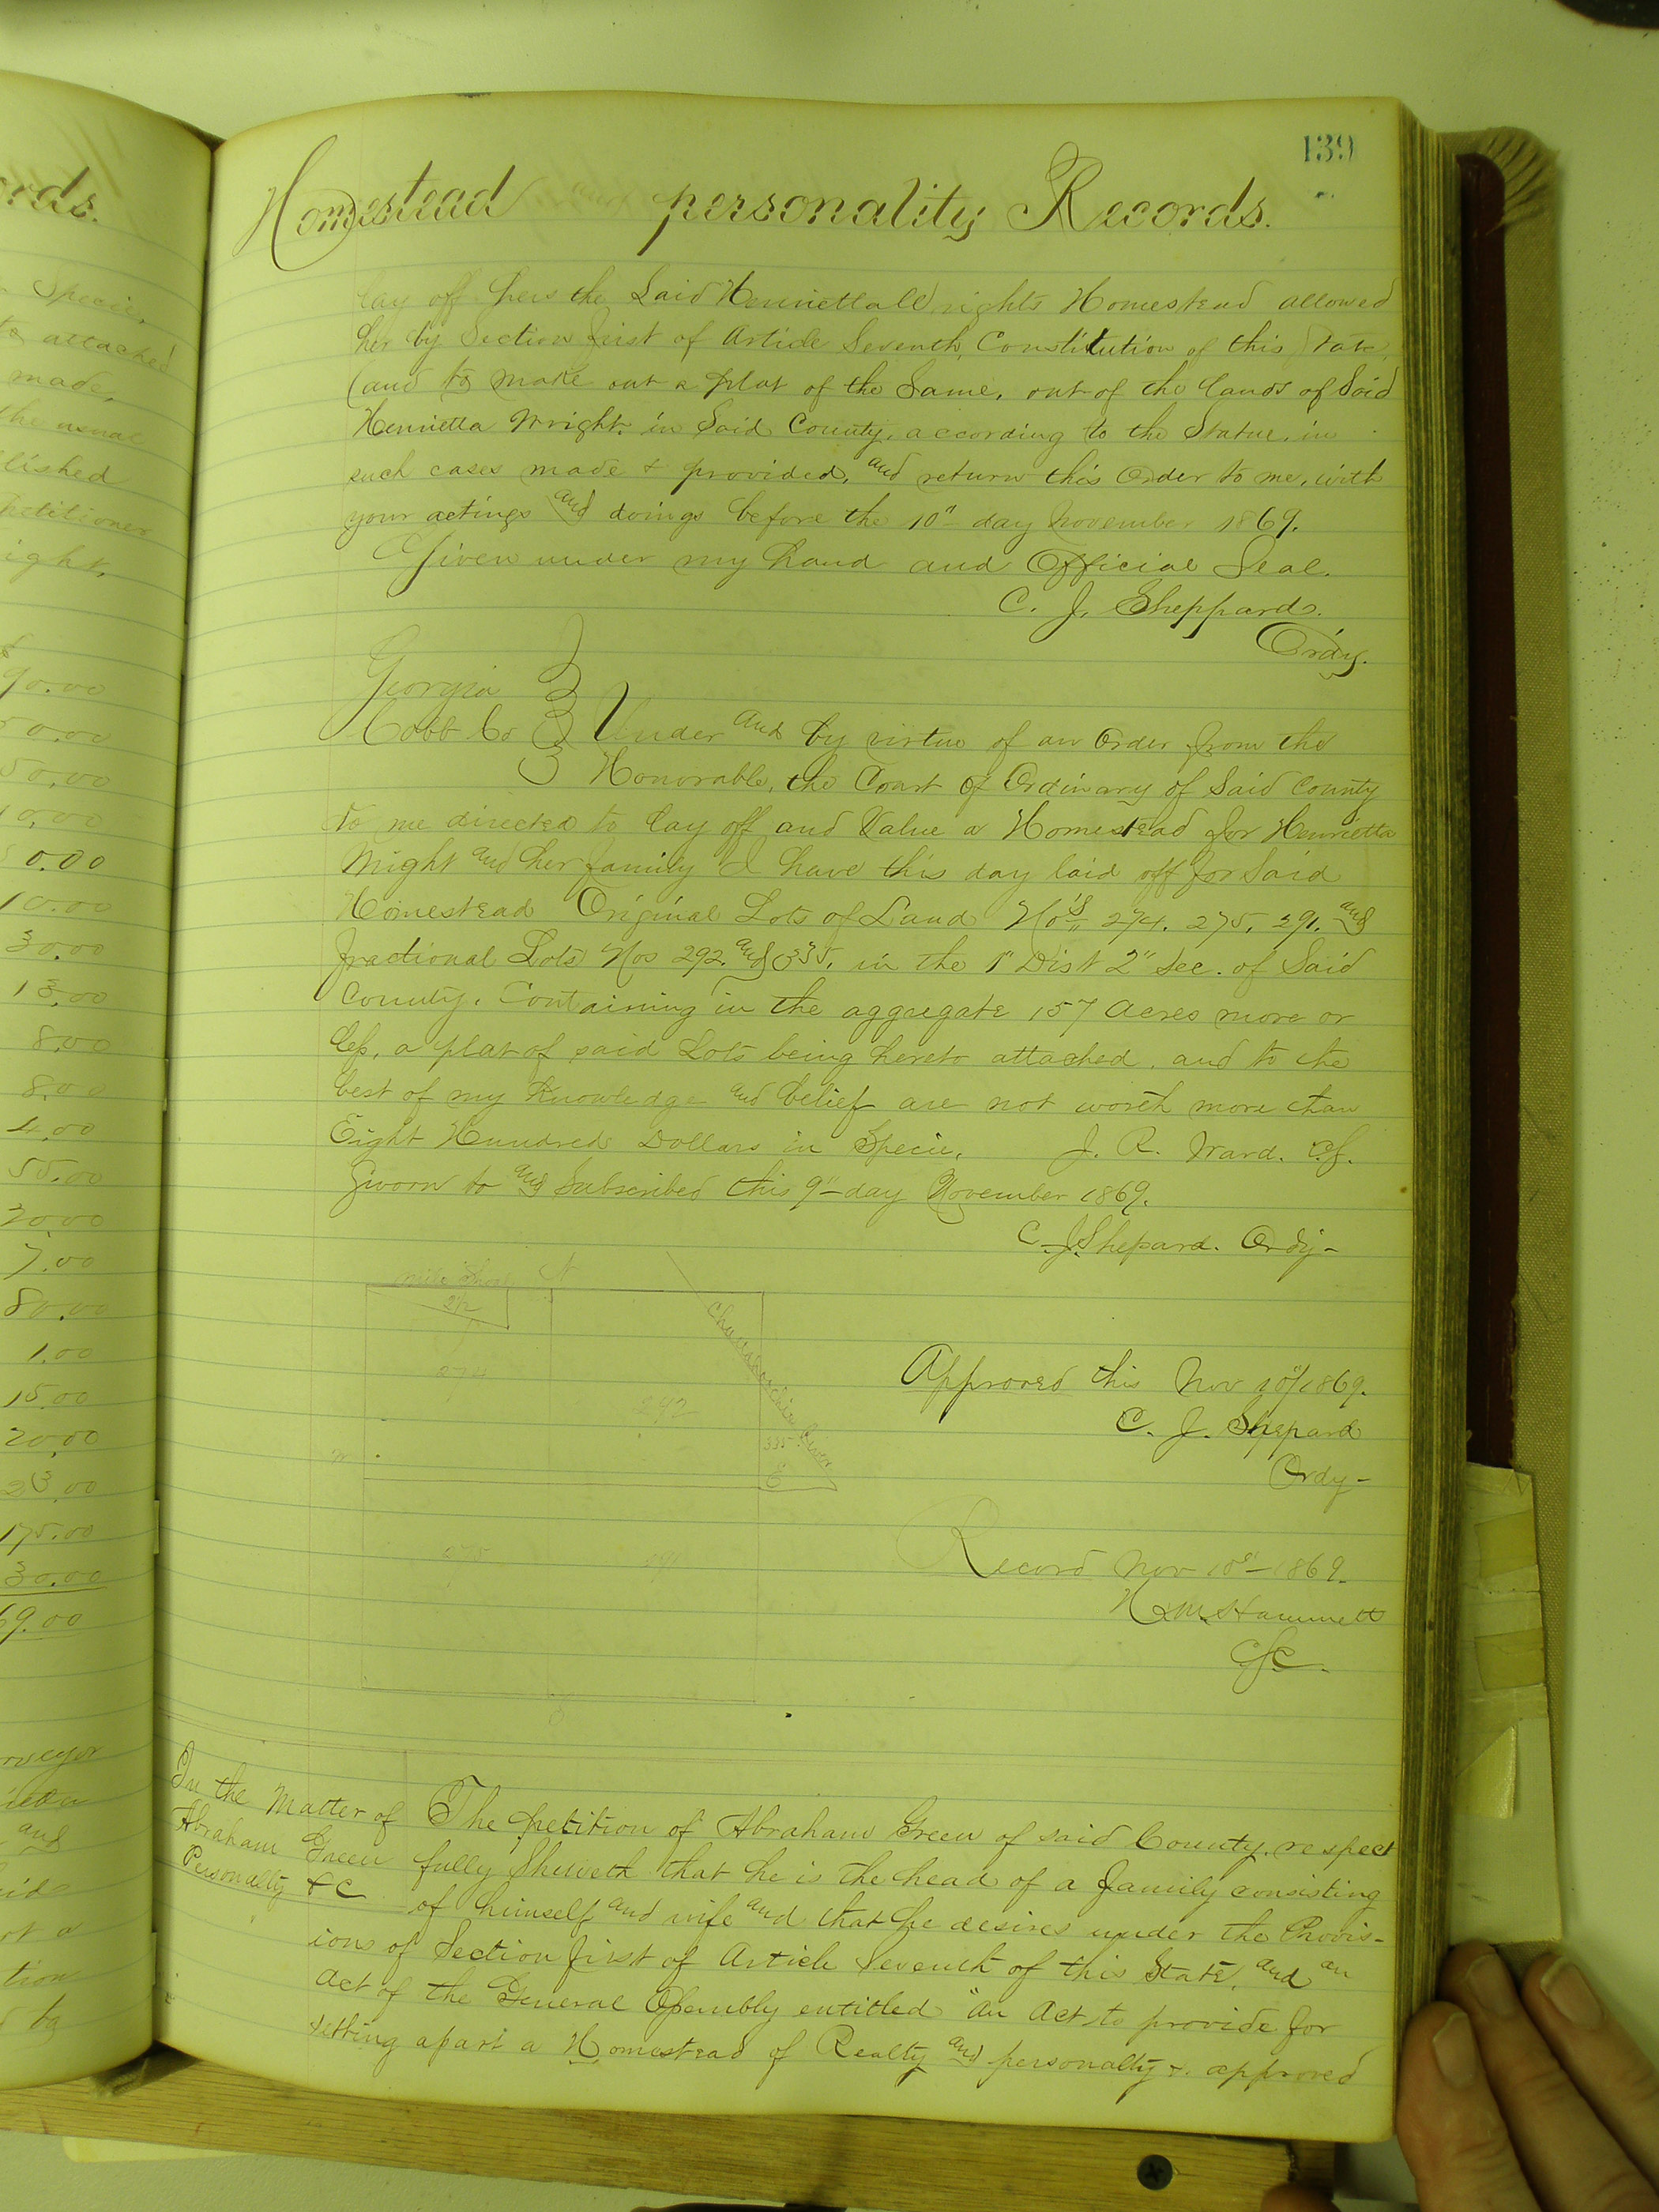 139
Homestead and personality Records.
lay off hers the Said Henrietta Wrights Homestead allowed
her by Section first of Article Seventh, Constitution of this State,
(and to make out a plat of the Same, out of the lands of Said
Henrietta Wright. in Said County, according to the Statue, in
such cases made & provided, and return this Order to me, with
your actings and doings before the 10" day November 1869.
Given under my hand and Official Seal.
C. J. Sheppard.
Ordy.
Georgia
Cobb Co Under and by virtue of an Order from the
Honorable, the Court of Ordinary of Said County
to me directed to lay off and Value a Homestead for Henrietta
Wright and her family I have this day laid off for Said
Homestead Original Lots of Land No's 274. 275, 291. and
fractional Lots Nos 292. and 335, in the 1" Dist 2" Sec. of Said
County. Containing in the aggregate 157 Acres more or
less, a plat of said Lots being hereto attached, and to the
best of my Knowledge and belief are not worth more than
Eight Hundred Dollars in Specie, J. R. Ward. C.S.
Sworn to and Subscribed this 9" day November 1869.
C. J. Shepard. Ordy-
N
Chattahoochie River
274
292
335
E
275
291
Approved this Nov 10"/1869.
C. J. Shepard
Ordy-
Record Nov 10" 1869.
Hammett
CSC.
In the Matter of
Abraham Green
Personalty &C
The petition of Abraham Green of said County, respect
fully Sheweth that he is the head of a family consisting
of himself and wife and that he desires under the Provis-
ions of Section first of Article Seventh of this State, and an
Act of the General Assembly entitled "An Act to provide for
setting apart a Homestead of Realty and personalty &. approved